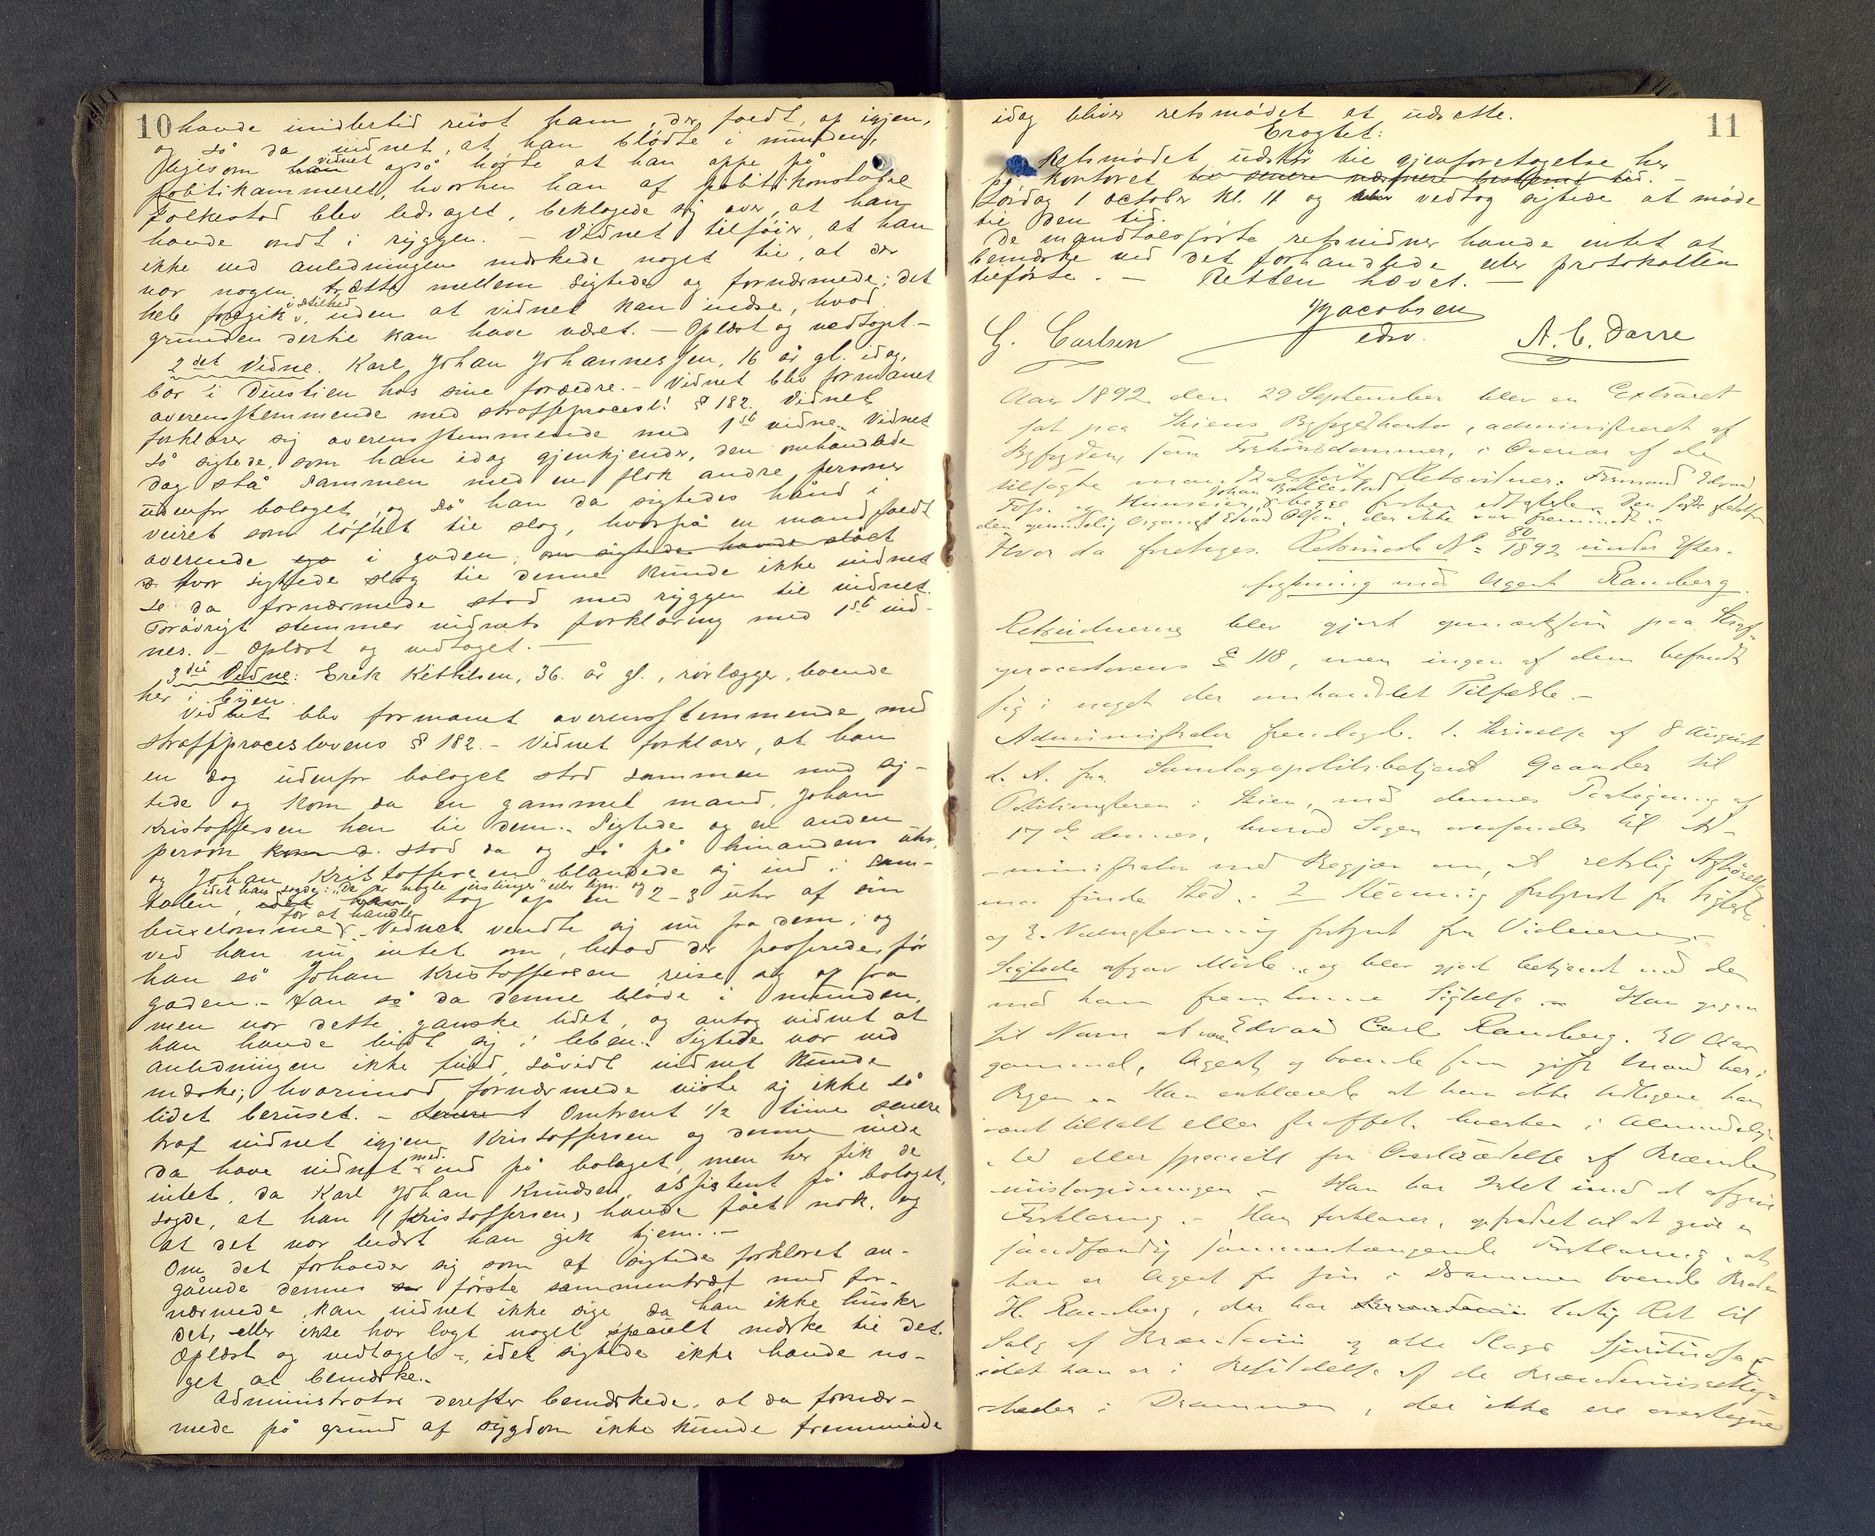 10 havde imidlertid reist ham, der faldt, op igjen,
og så da vidnet, at han blødte i munden,
ligesom vidnet også hørte at han oppe på
politikammeret, hvorhen han af politikonstabel
Folkestad blev ledsaget, beklagede sig over, at han
havde ondt i ryggen. – Vidnet tilføier, at han
ikke ved anledningen mærkede noget til, at der
var nogen trætte mellem sigtede og fornærmede; det
hele foregik i stilhed, uden at vidnet kan indse, hvad
grunden dertil kan have været. – Oplæst og vedtaget –
2det Vidne. Karl Johan Johannessen, 16 år gl. idag,
bor i Duestien hos sine forældre. – Vidnet blev formanet
overensstemmende med straffprocesl. § 182. Vidnet
forklarer sig overensstemmende med 1ste vidne. Vidnet
så sigtede, som han idag gjenkjender, den omhandlede
dag stå sammen med en flok andre personer
udenfor bolaget, og så han da sigtedes hånd i
veiret som løftet til slag, hvorpå en mand faldt
overende i gaden, om sigtede havde slået
Hvor sigtede slog til denne kunde ikke vidnet
se da fornærmede stod med ryggen til vidnet.
Forøvrigt stemmer vidnets forklaring med 1ste vid-
nes. – Oplæst og vedtaget. –
3die Vidne: Erik Kittilsen, 36 år gl., rørlægger, boende
her i byen.
Vidnet blev formanet overensstemmende med
straffproceslovens § 182. – Vidnet forklarer, at han
en dag udenfor bolaget stod sammen med sig-
tede og kom da en gammel mand, Johan
Kristoffersen hen til dem. Sigtede og en anden
person stod da og så på hinandens uhr
og Johan Kristoffersen blandede sig ind i sam-
talen, idet han sagde: "De er nogle uslinger" eller lign. og tog op en 2–3 uhr af sin
buxelomme for at handle. Vidnet vendte sig nu fra dem, og
ved han nu intet om, hvad der passerede, før
han så Johan Kristoffersen reise sig op fra
gaden. – Han så da denne bløde i munden,
men var dette ganske lidet, og antog vidnet at
han havde bidt sig i leben. Sigtede var ved
anledningen ikke fuld, såvidt vidnet kunde
mærke; hvorimod fornærmede viste sig ikke så
lidet beruset. – Omtrent 1/2 time senere
traf vidnet igjen Kristoffersen og denne vilde
da have vidnet med ind på bolaget, men her fik de
intet, da Karl Johan Knudsen, assistent på bolaget,
sagde, at han (Kristoffersen) havde fået nok, og
at det var bedst han gik hjem. –
Om det forholder sig som af sigtede forklaret an-
gående dennes første sammentræf med for-
nærmede, kan vidnet ikke sige da han ikke husker
det, eller ikke har lagt noget specielt mærke til det.
Oplæst og vedtaget –, idet sigtede ikke havde no-
get at bemærke.
Administrator derefter bemærkede, at da fornær-
mede på grund af sygdom ikke kunde fremmøde
11
idag bliver retsmødet at udsætte.
Eragtet:
Retsmødet udstår til gjenforetagelse her
på kontoret til senere nærmere bestemt tid. –
Lørdag 1 october kl. 11 og vedtog sigtede at møde
til den tid.
De mandtalsførte retsvidner havde intet at
bemærke ved det forhandlede eller protokollen
tilførte. – Retten hævet. –
Jacobsen
G. Carlsen edsv. A. C. Darre
Aar 1892 den 29 September blev en Extraret
sat paa Skiens Byfogedkontor, administreret af
Byfogden som Forhørsdommer, i Overvær af de
tilsagte mandtalsførte Retsvidner: Edvard
Hvor da foretoges: Retssak No 80/1892 under Efter-
forskning mod Agent Ramberg.
Retsvidnerne blev gjort opmærksom paa Straf-
proceslovens § 118, men ingen af dem befandt
sig i noget der omhandlet Tilfælde. –
Administrator fremlagde 1. Skrivelse af 8 August
d. A. fra Samlagspolitibetjent Gaander til
Politimesteren i Skien, med dennes Paategning af
17de dennes, hvorved Sagen oversendes til Ad-
ministrator med Begjær om, at retslig Afhørelse
maa finde Sted. 2 Stevning forkyndt for Sigtede
og 3. Vidnestevning forkynt for Vidnerne.
Sigtede afgav Møde, og blev gjort bekjendt med den
mod ham fremkomne Sigtelse. – Han opgav
sit Navn at være Edvard Carl Ramberg, 30 Aar
gammel, Agent og boende som gift Mand her i
Byen. – Han erklærede at han ikke tidligere har
været tiltalt eller straffet, hverken i Almindelig-
hed eller specielt for Overtrædelse af Brænde-
vinslovgivningen. – Han har Intet imod at afgive
Forklaring. – Han forklarer, opfordret til at give en
sandfærdig sammenhængende Forklaring, at
han er Agent for sin i Drammen boende Broder
H. Ramberg, der har lovlig Ret til
Salg af Brændevin og alle Slags Spirituosa –
idet han er i Besiddelse af de Brændevinsrettig-
heder i Drammen, der ikke ere overtagne